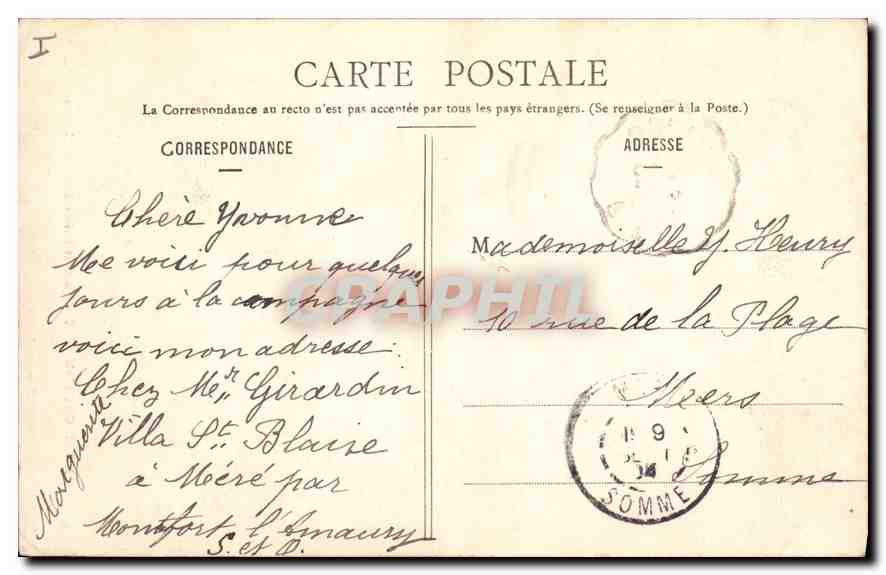 I
CARTE POSTALE
La Correspondance au recto n'est pas acceptée par tous les pays étrangers. (Se renseigner à la Poste.)
CORRESPONDANCE
Chère Yvonne
Me voici pour quelques
jours à la campagne
voici mon adresse:
Chez Mr Girardin
Villa St. Blaise
à Méré par
Montfort l'Amaury
S. et O.
Marguerite
ADRESSE
Mademoiselle Y. Henry
10 rue de la Plage
Meers
Somme
9
04
SOMME
CPAPHIL